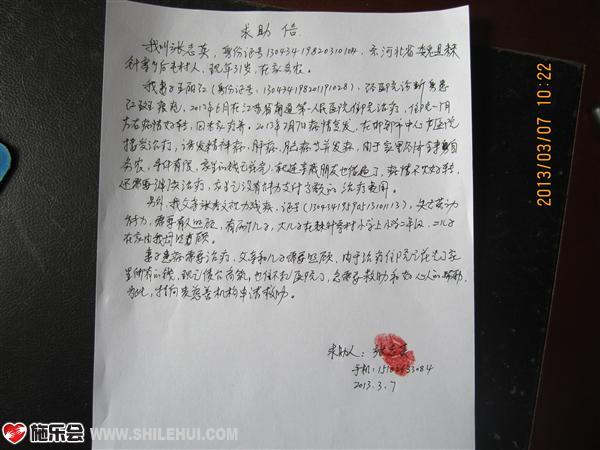 求助信
我叫张志英，身份证号130434198203101，系河北省魏县棘
针寨乡后屯村人，现年31岁，在家务农。
我妻子王丽红（身份证号：130434198201191028），经医院诊断患
红斑狼疮，2012年6月在江苏省南通第一人民医院住院治疗，住院一个月
左右病情好转，回老家疗养。2013年2月7日病情复发，在邯郸市中心医院
接受治疗，诱发精神病、肝病、脑病等并发病，由于家里
务农，条件有限，家里的钱已花完，就连亲戚朋友也借遍了，病情不太好转，
还需要继续治疗，在自己没有能力支付的治疗费用。
另外，我父亲张 残疾，证号，失去劳动
能力，需要照顾，有两个儿子，大儿子在棘针寨村小学上小学二年级，二儿子
在家由我母照顾。
妻子患病需要治疗，父亲和儿子需要照顾，由于治疗住院已花光了家
里所有的钱，现已债台高筑，也住不起医院了，急需要救助和好心人的帮助，
为此，特向贵慈善机构申请救助。
求助人：张志英
手机：
2013.3.7
2013/03/07 10:22
施乐会 WWW.SHILEHUI.COM